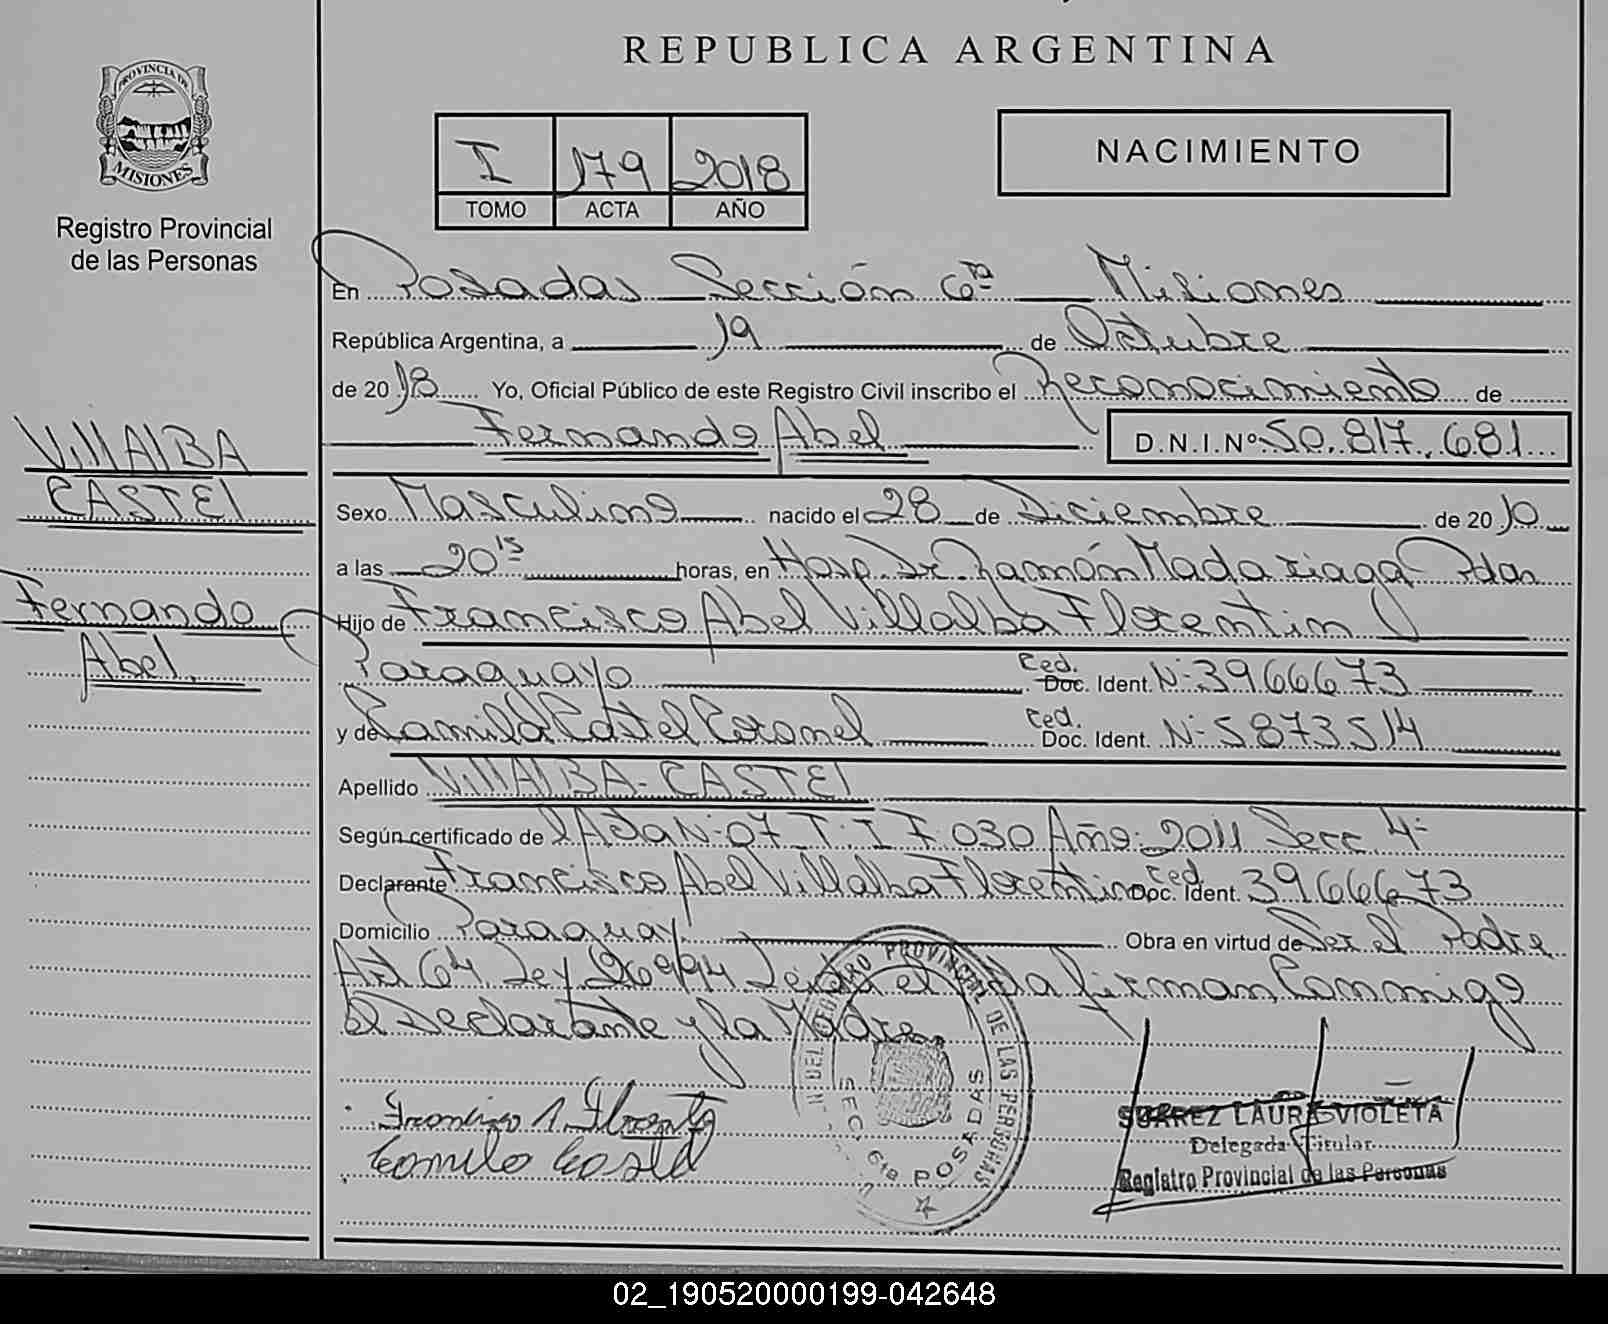 REPUBLICA ARGENTINA
PROVINCIA DE
MISIONES
Registro Provincial
de las Personas
I 179 2018
TOMO ACTA AÑO
NACIMIENTO
En Posadas Sección 6ta Misiones
República Argentina, a 19 de Octubre
de 2018 Yo, Oficial Público de este Registro Civil inscribo el Reconocimiento de
Fernando Abel D.N.I.Nº 50.817.681
VillAlBA
CASTEl
Fernando
Abel.
Sexo Masculino nacido el 28 de Diciembre de 2010
a las 20 15 horas, en Hosp. Dr. Ramón Madariaga Pdas
Hijo de Francisco Abel Villalba Florentin
Paraguayo Ced. Doc. Ident. Nº 3966673
y de Camila Castel Coronel Ced. Doc. Ident. Nº 5873514
Apellido VillAlBA - CASTEl
Según certificado de el Acta Nº 07 T: I F 030 Año: 2011 Secc 4º
Declarante Francisco Abel Villalba Florentino Ced. Doc. Ident. 3966673
Domicilio Paraguay Obra en virtud de Ser el Padre
Art 64 Ley 26994 Leída el Acta firman Conmigo
El Declarante y la Madre.
Francisco A. Florentin
Camila Castel
DEL REGISTRO PROVINCIAL DE LAS PERSONAS
SEC. 6ta POSADAS
SUAREZ LAURA VIOLETA
Delegada Titular
Registro Provincial de las Personas
02_190520000199-042648